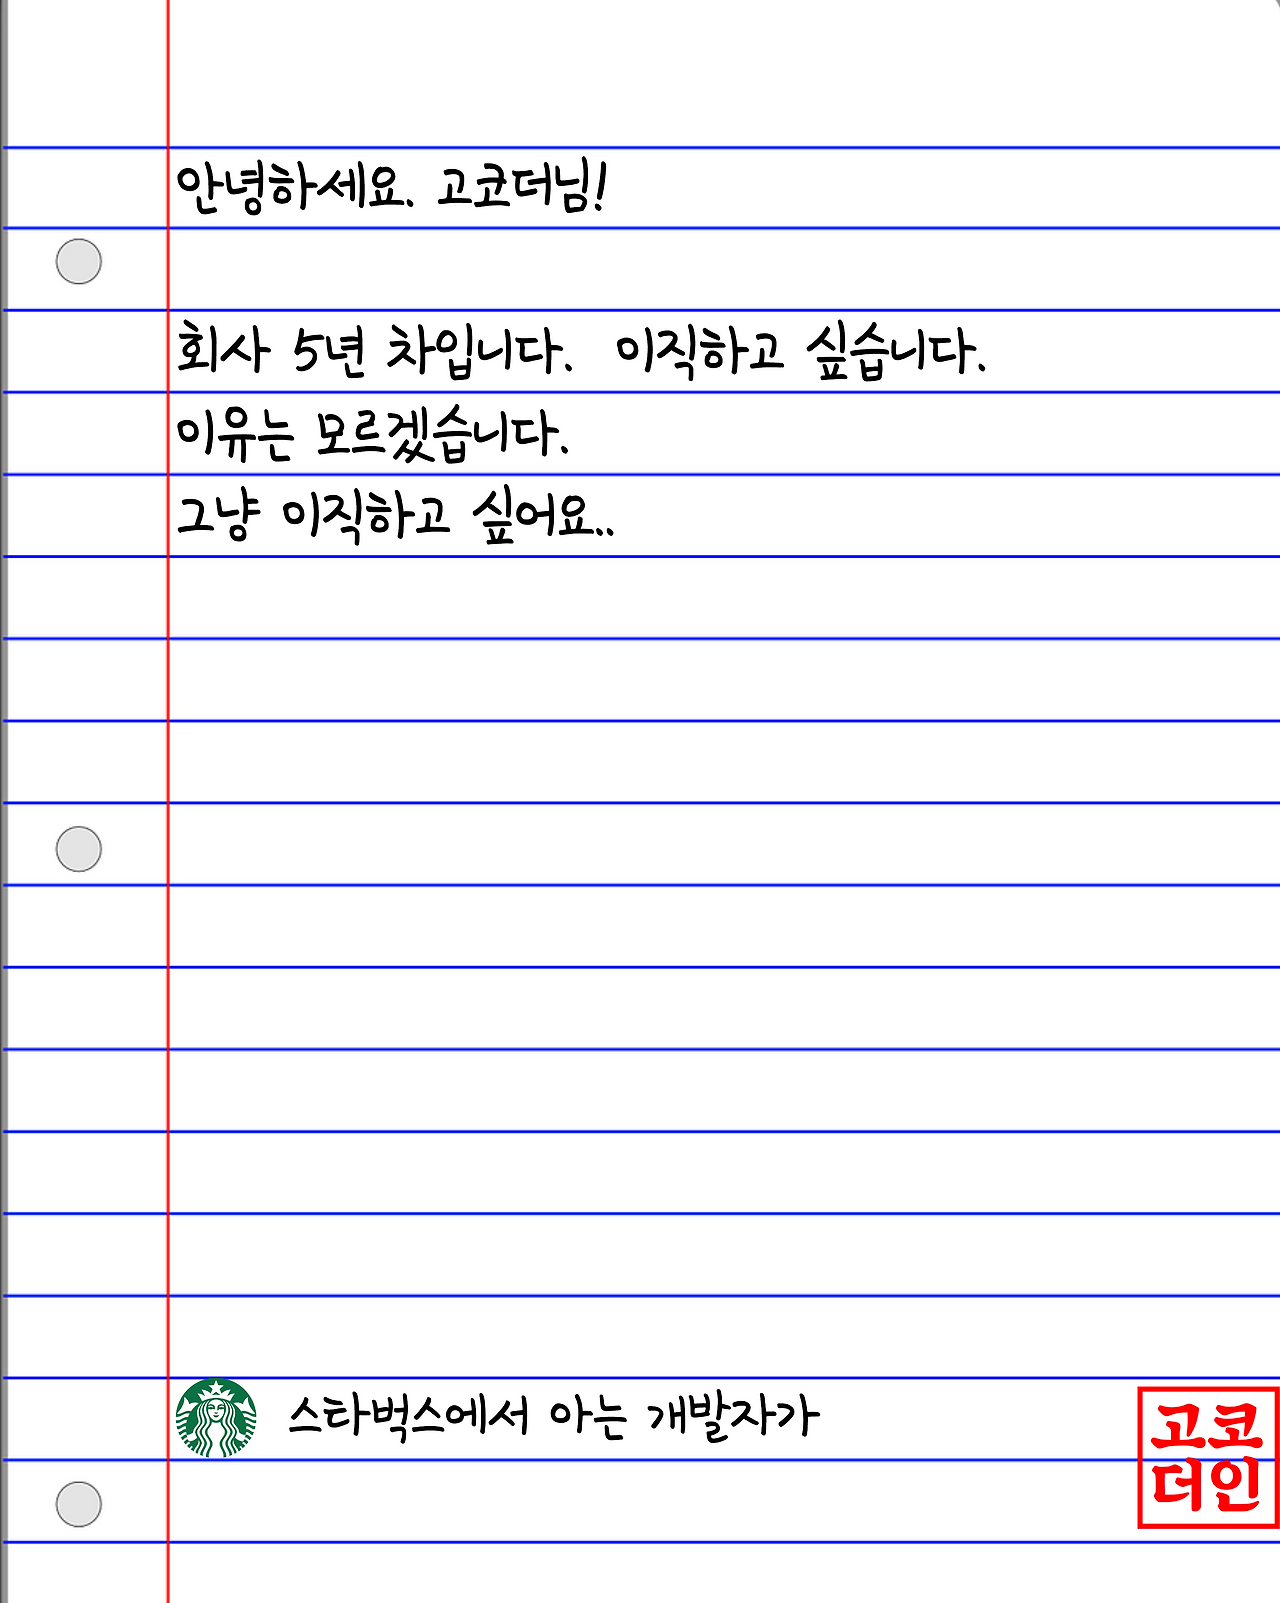 안녕하세요. 고코더님!
회사 5년 차입니다. 이직하고 싶습니다.
이유는 모르겠습니다.
그냥 이직하고 싶어요..
스타벅스에서 아는 개발자가
고코
더인